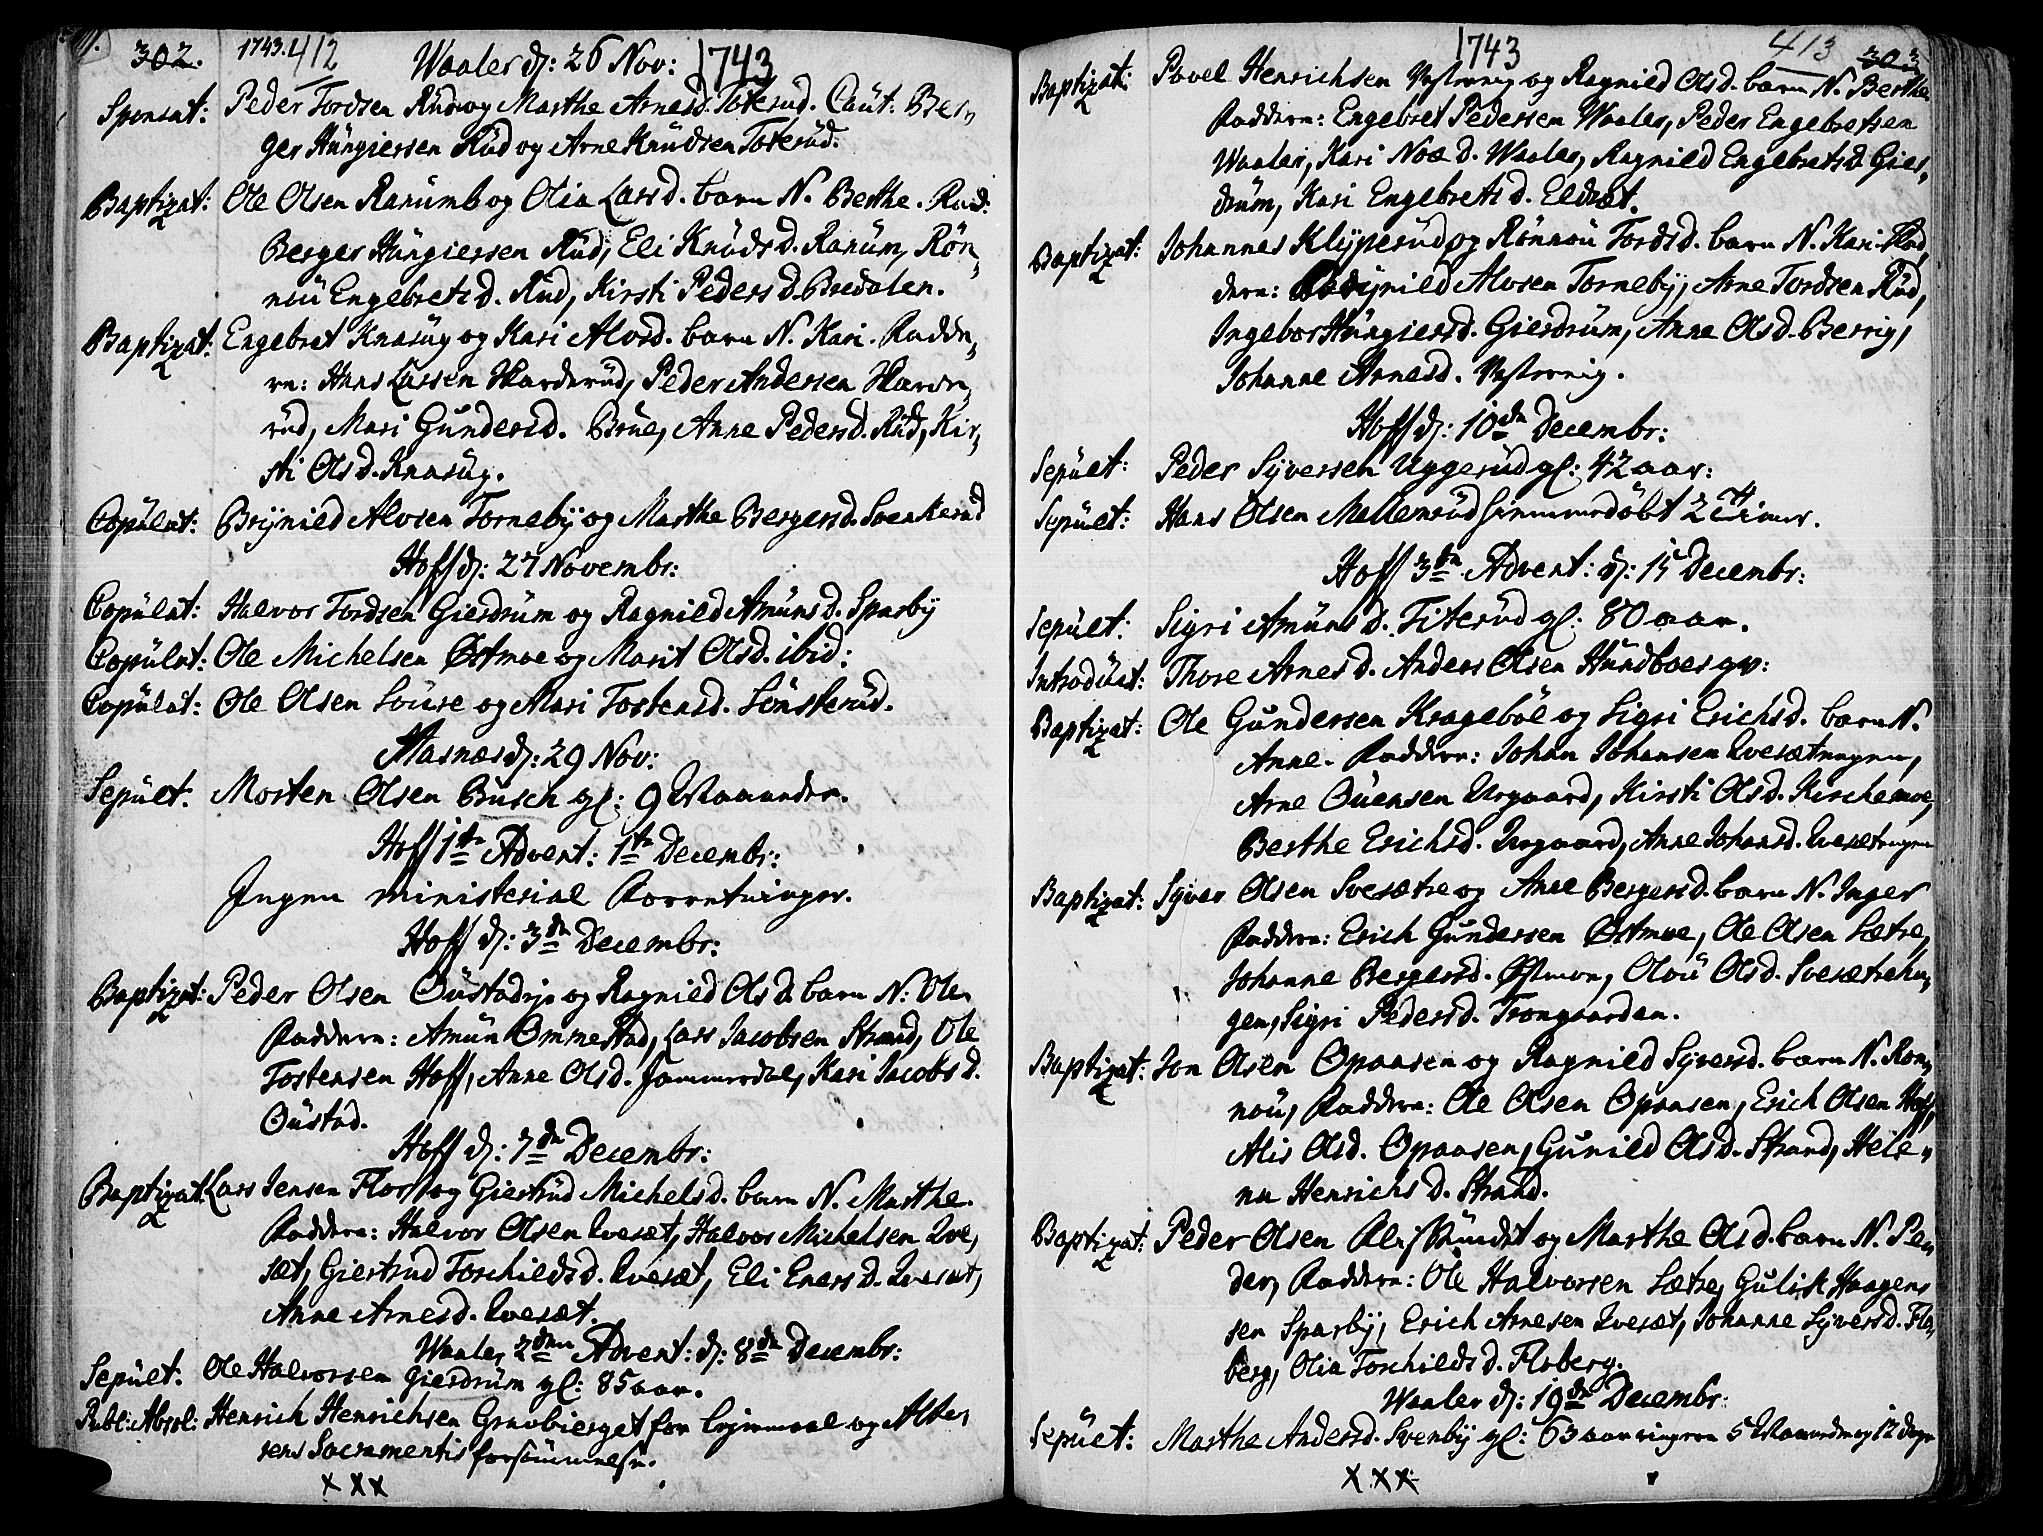 302. 1743. 412
Waaler d: 26 Nov: 1743
Sponsat: Peder Tordsen Rud og Marthe Arnesd. Toterud. Caut: Ber„
ger Hüngiersen Rüd og Arne Knüdsen Toterüd.
Baptizat: Ole Olsen Ranümb og Olia Larsd. barn N. Berthe. Fad:
Berger Hüngiersen Rüd, Eli Knüdsd. Ranüm, Røn„
noü Engebretsd. Rüd, Kirsti Pedersd. Bredalen.
Baptizat: Engebret Knasüg og Kari Alvsd. barn N. Kari. Fadde„
re: Hans Larsen Harderüd, Peder Andersen Harde„
rüd, Mari Gündersd. Brüe, Anne Pedersd. Rüd, Kir„
sti Olsd. Knasüg.
Copülat: Brÿnild Alvsen Tornebÿ og Marthe Bergersd. Svenkerüd
Hoff d: 27 Novembr:
Copülat: Halvor Tordsen Gierdrüm og Ragnild Amünsd. Sparbÿ
Copülat: Ole Michelsen Østmoe og Marit Olsd. ibid:
Copülat: Ole Olsen Soüse og Mari Tostensd. Sønsterüd.
Aasnæs d: 29 Nov:
Sepült. Morten Olsen Büsch gl: 9 Maaneder.
Hoff 1te Advent: 1te Decembr:
Ingen ministerial Forretninger.
Hoff d: 3de Decembr:
Baptizat: Peder Olsen Oüstadeje og Ragnild Olsd. barn N: Ole.
Faddere: Amün Ommestad, Lars Jacobsen Strand, Ole
Tostensen Hoff, Anne Olsd. Jammerdal, Kari Jacobsd.
Oüstad.
Hoff d: 7de Decembr:
Baptizat: Lars Jensen Flor og Giertrüd Michelsd. barn N. Marthe.
Faddere: Halvor Olsen Qvesæt, Halvor Michelsen Qve„
sæt, Giertrüd Torchildsd. Qvesæt, Eli Enersd. Qvesæt,
Anne Arnesd. Qvesæt.
Waaler 2den Advent: d: 8de Decembr:
Sepült. Ole Halvorsen Gierdrüm gl: 85 aar.
Publ: Absol: Henrich Henrichsen Gravbierget for Lejermaal og Alte„
rens Sacramentis forsømmelse.
x x x
1743 413 303
Baptizat: Povel Henrichsen og Ragnild Olsd. barn N. Berthe
Faddere: Engebret Pedersen Waaler, Peder Engebretsen
Waaler, Kari Noæd. Waaler, Ragnild Engebretsd. Gier„
drüm, Kari Engebretsd. Eldræt.
Baptizat: Johannes Klÿpperüd og Rønnoü Tordsd. barn N. Kari. Fad„
dere: Brÿnild Alvsen Tornebÿ, Arne Tordsen Rüd,
Ingebor Hüngiersd. Gierdrüm, Anne Olsd. Berrig,
Johanne Arnesd.
Hoff d: 10de Decembr:
Sepült: Peder Sÿversen Uggerüd gl: 42 aar:
Sepült: Hans Olsen Mellemrüd hiemmedøbt 2 Timer.
Hoff 3de Advent: d: 15 Decembr:
Sepült: Sigri Amünsd. Titerüd gl: 80 aar.
Introdüct: Thore Arnesd. Anders Olsen Hündboes qv:
Baptizat: Ole Gündersen Krageböl og Sigri Erichsd. barn N.
Anne. Faddere: Johan Johansen Qvesætengen,
Arne Oüensen Urgaard, Kirsti Olsd. Kirchemoe,
Berthe Erichsd. Urgaard, Anne Johansd. Qvesætengen
Baptizat: Sÿver Olsen Svesætre og Anne Bergersd. barn N. Inger
Faddere: Erich Gündersen Østmoe, Ole Olsen Sætre,
Johanne Bergersd. Østmoe, Oloü Olsd. Svesætrehau„
gen, Sigri Pedersd. Trongaarden.
Baptizat: Jon Olsen Opaasen og Ragnild Sÿversd. barn N. Ron„
noü, Faddere: Ole Olsen Opaasen, Erich Olsen Hoff,
Alis Olsd. Opaasen, Günild Olsd. Strand, Hele„
na Henrichsd. Strand.
Baptizat: Peder Olsen og Marthe Olsd. barn N. Pe„
der, Faddere: Ole Halvorsen Sætre, Gülik Haagen„
sen Sparbÿ, Erich Arnesen Qvesæt, Johanne Sÿversd. Flo„
berg, Olia Torchildsd. Floberg.
Waaler d: 19de Decembr:
Sepült: Marthe Andersd. Svenbÿ gl: 63 aar ringere 5 Maaneder og 12 dage
x x x